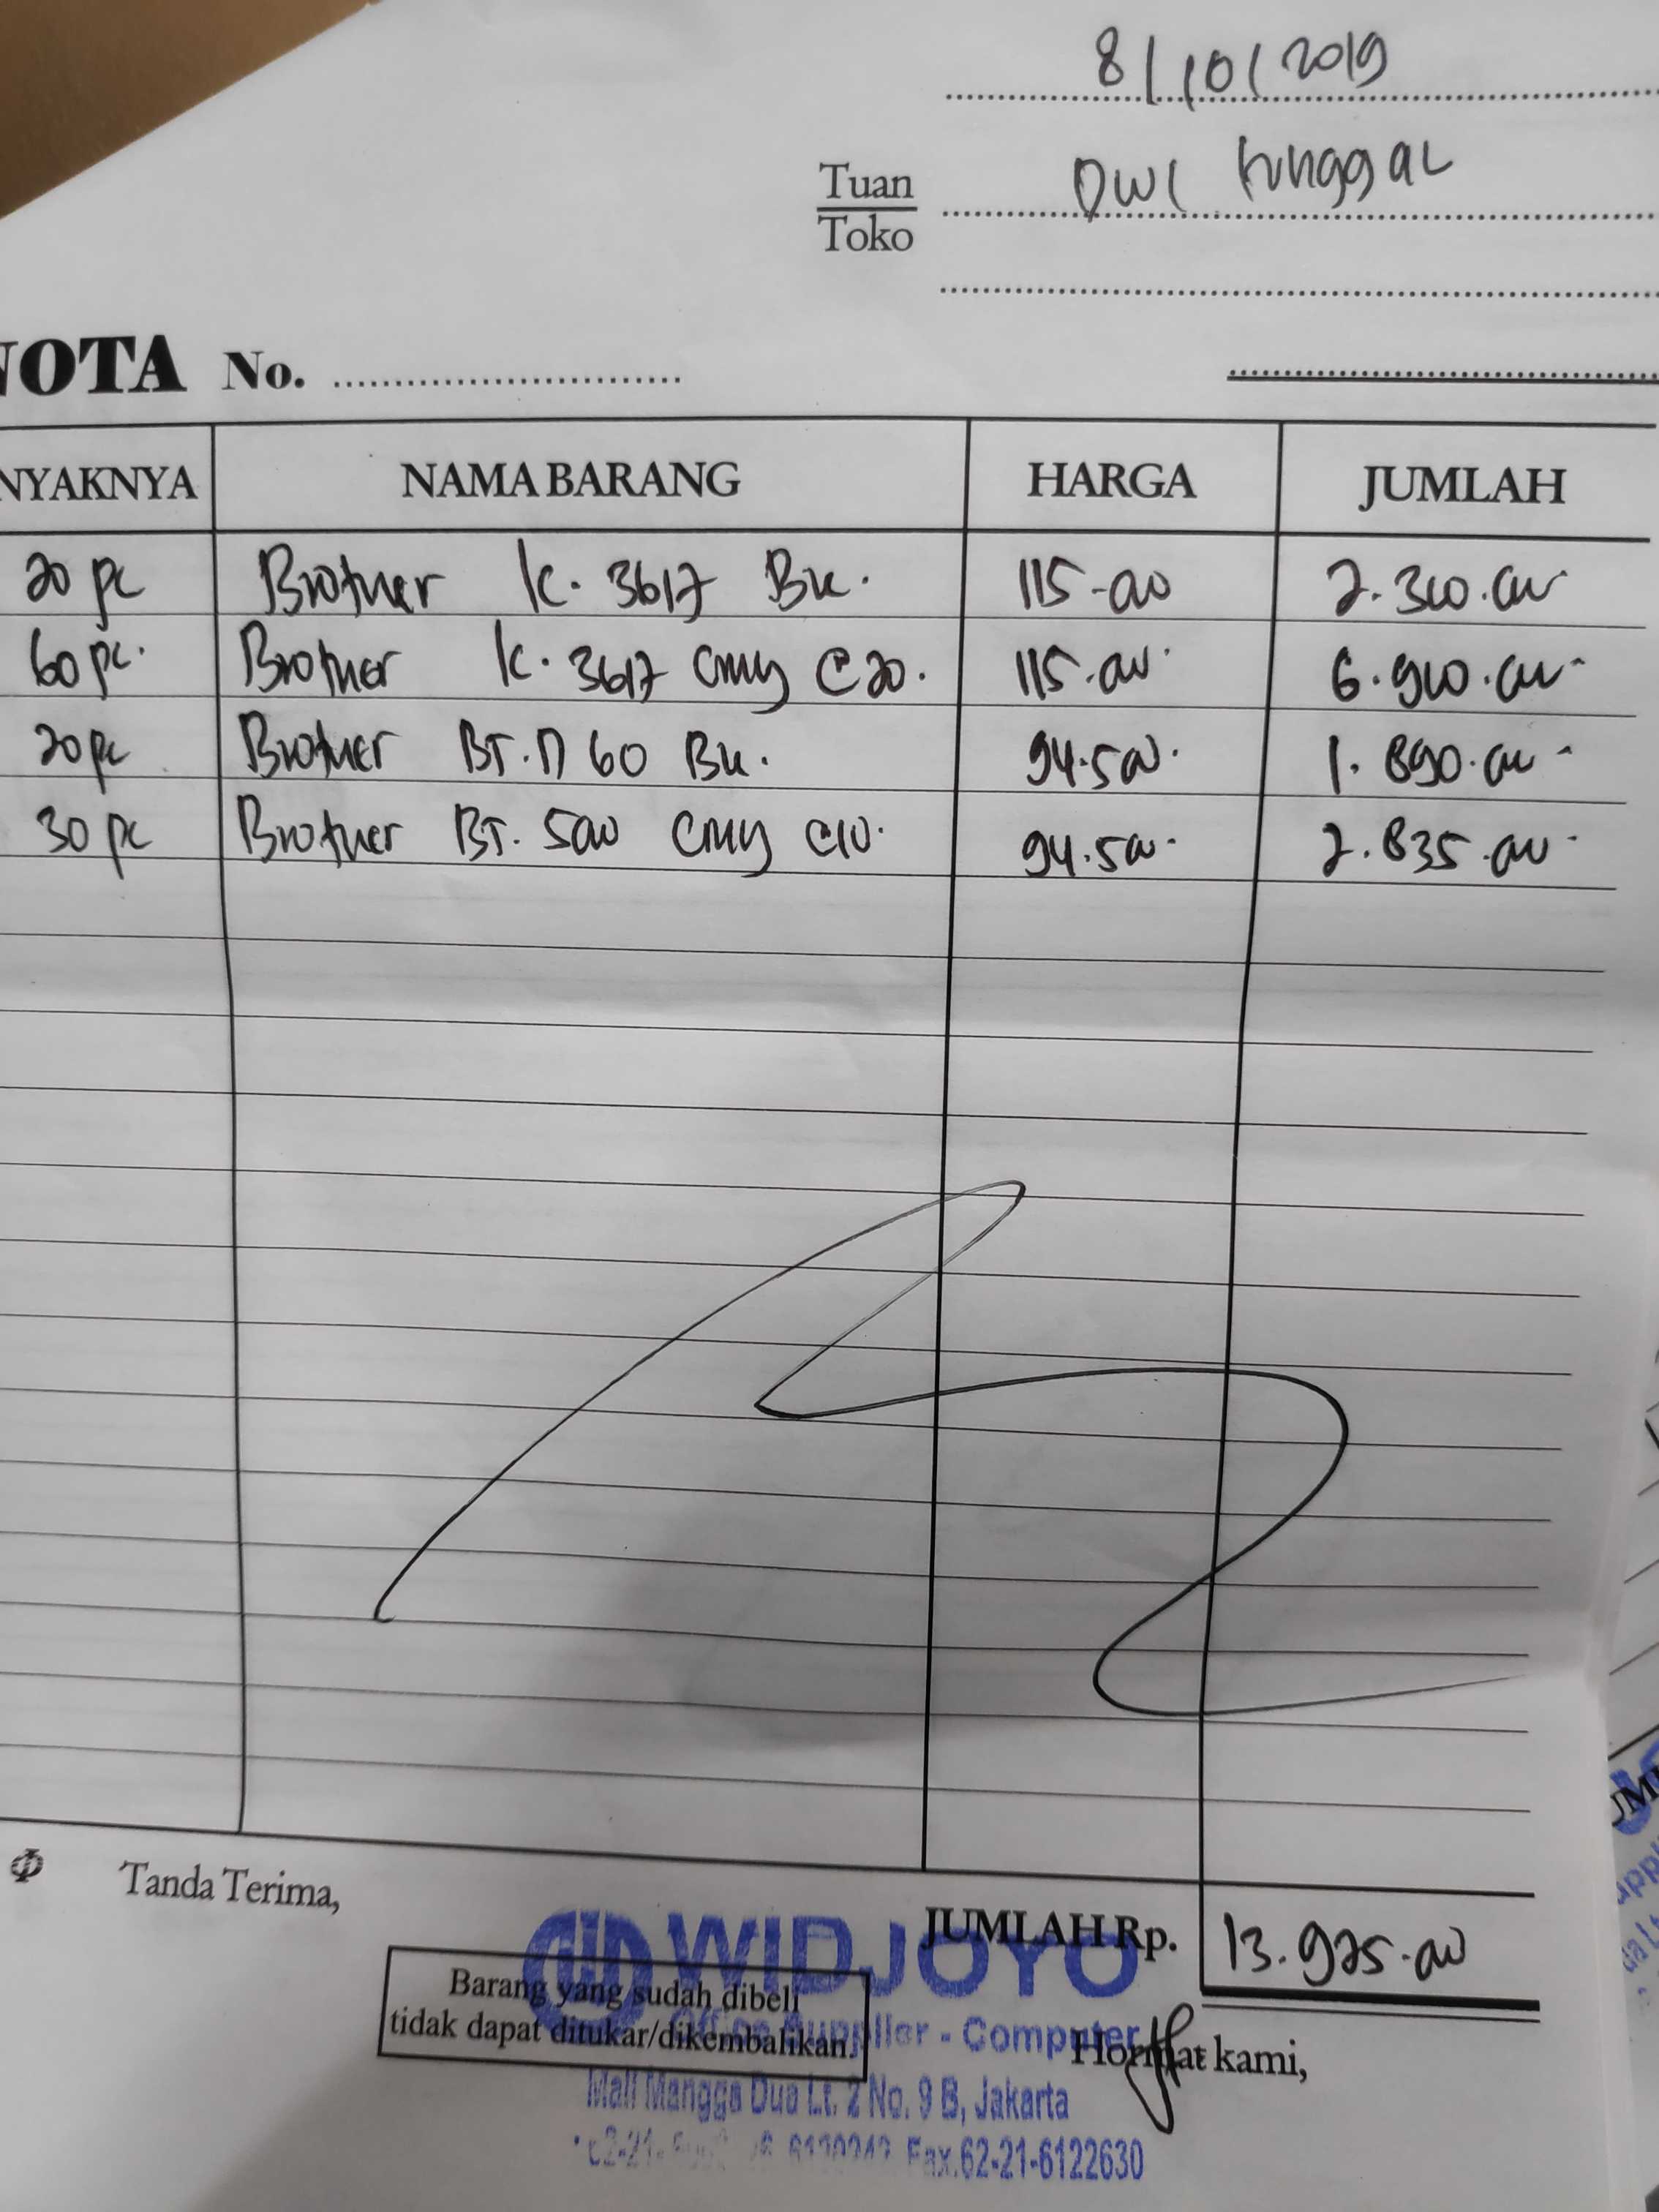 8/10/2019
Tuan
Toko
Dwi tunggal
NOTA No.
NYAKNYA NAMA BARANG HARGA JUMLAH
20 pc Brother lc. 3617 Bk. 115-000 2.300.000-
60 pc. Brother lc. 3617 cmy @20. 115.000. 6.900.000-
20 pc Brother BT. D 60 Bk. 94.500. 1.890.000-
30 pc Brother BT. 5000 cmy @10. 94.500- 2.835.000-
Tanda Terima,
JUMLAH Rp. 13.925.000
WIDJOYO
Barang yang sudah dibeli
tidak dapat ditukar/dikembalikan.
Office Supplier - Computer
Hormat kami,
Mall Mangga Dua Lt. 2 No. 9 B, Jakarta
Fax.62-21-6122630